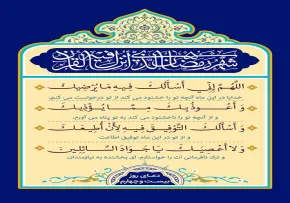 شهر رمضان الذی انزل فیه القرآن
اللّهُمَّ إِنِّي أَسْأَلُكَ فِيهِ مَا يُرْضِيكَ
خدایا در این ماه آنچه تو را خشنود می کند از تو درخواست می کنم،
وَ أَعُوذُ بِكَ مِمَّا يُؤْذِيكَ
و از آنچه تو را ناخشنود می کند به تو پناه می آورم.
وَ أَسْأَلُكَ التَّوْفِيقَ فِيهِ لِأَنْ أُطِيعَكَ
و از تو در این ماه توفیق اطاعت
وَلاَ أَعْصِيَكَ يَا جَوَادَ السَّائِلِينَ
و ترک نافرمانی ات را خواستارم، ای بخشنده به نیازمندان.
دعای روز
بیست و چهارم